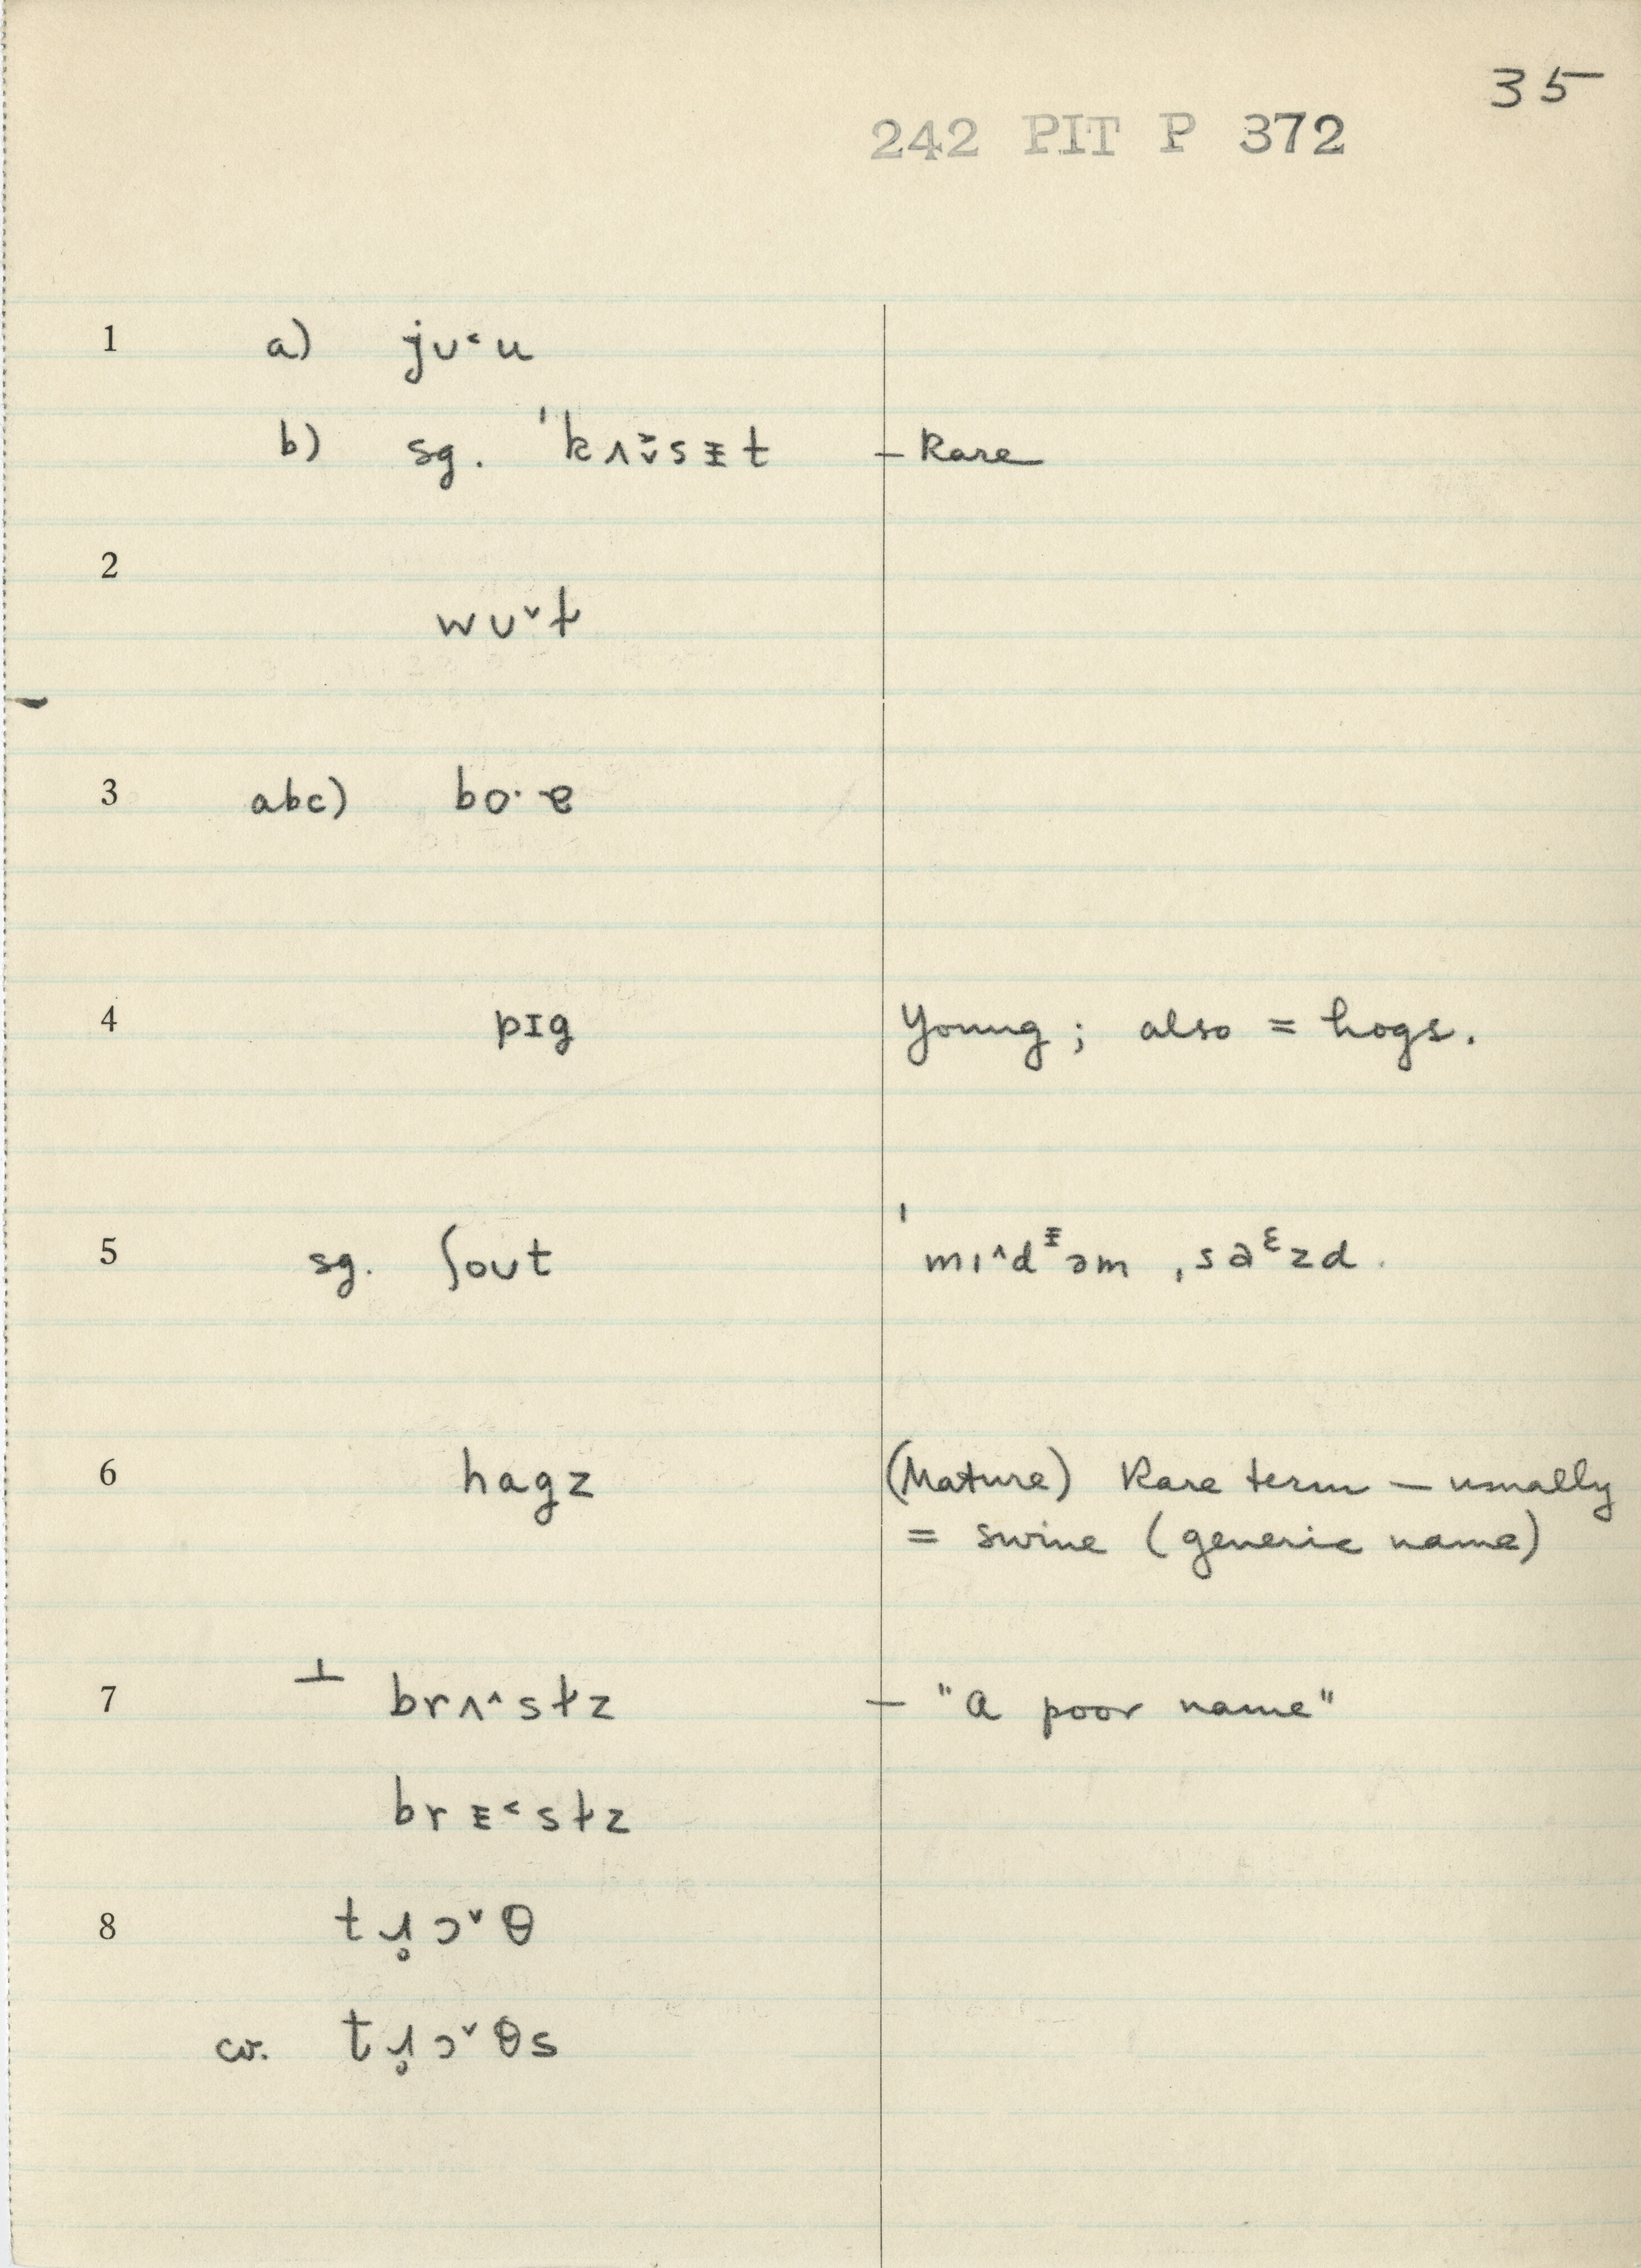 35
242 PIT P 372
1 a) jʊ˂u
b) sg. ˈkʌ˃̬sᵻt – Rare
2 wʊ˅ƚ
3 abc) bo·ɐ
4 pɪg Young; also = hogs.
5 sg. ʃout ˈmɪ˄dᵻəm ˌsaᵋzd.
6 hagz (Mature) Rare term – usually
= swine (generic name)
7 ⊥ brʌ˄sƚz – "a poor name"
brᵻ˂sƚz
8 tɹ̥ɔ˅θ
cr. tɹ̥ɔ˅θs